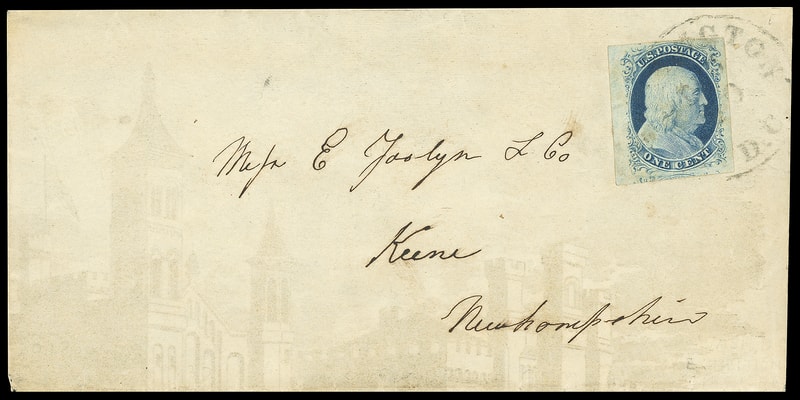 U.S. POSTAGE
ONE CENT
NGTON
D.C.
Mess E Joslyn & Co
Keene
Newhampshire